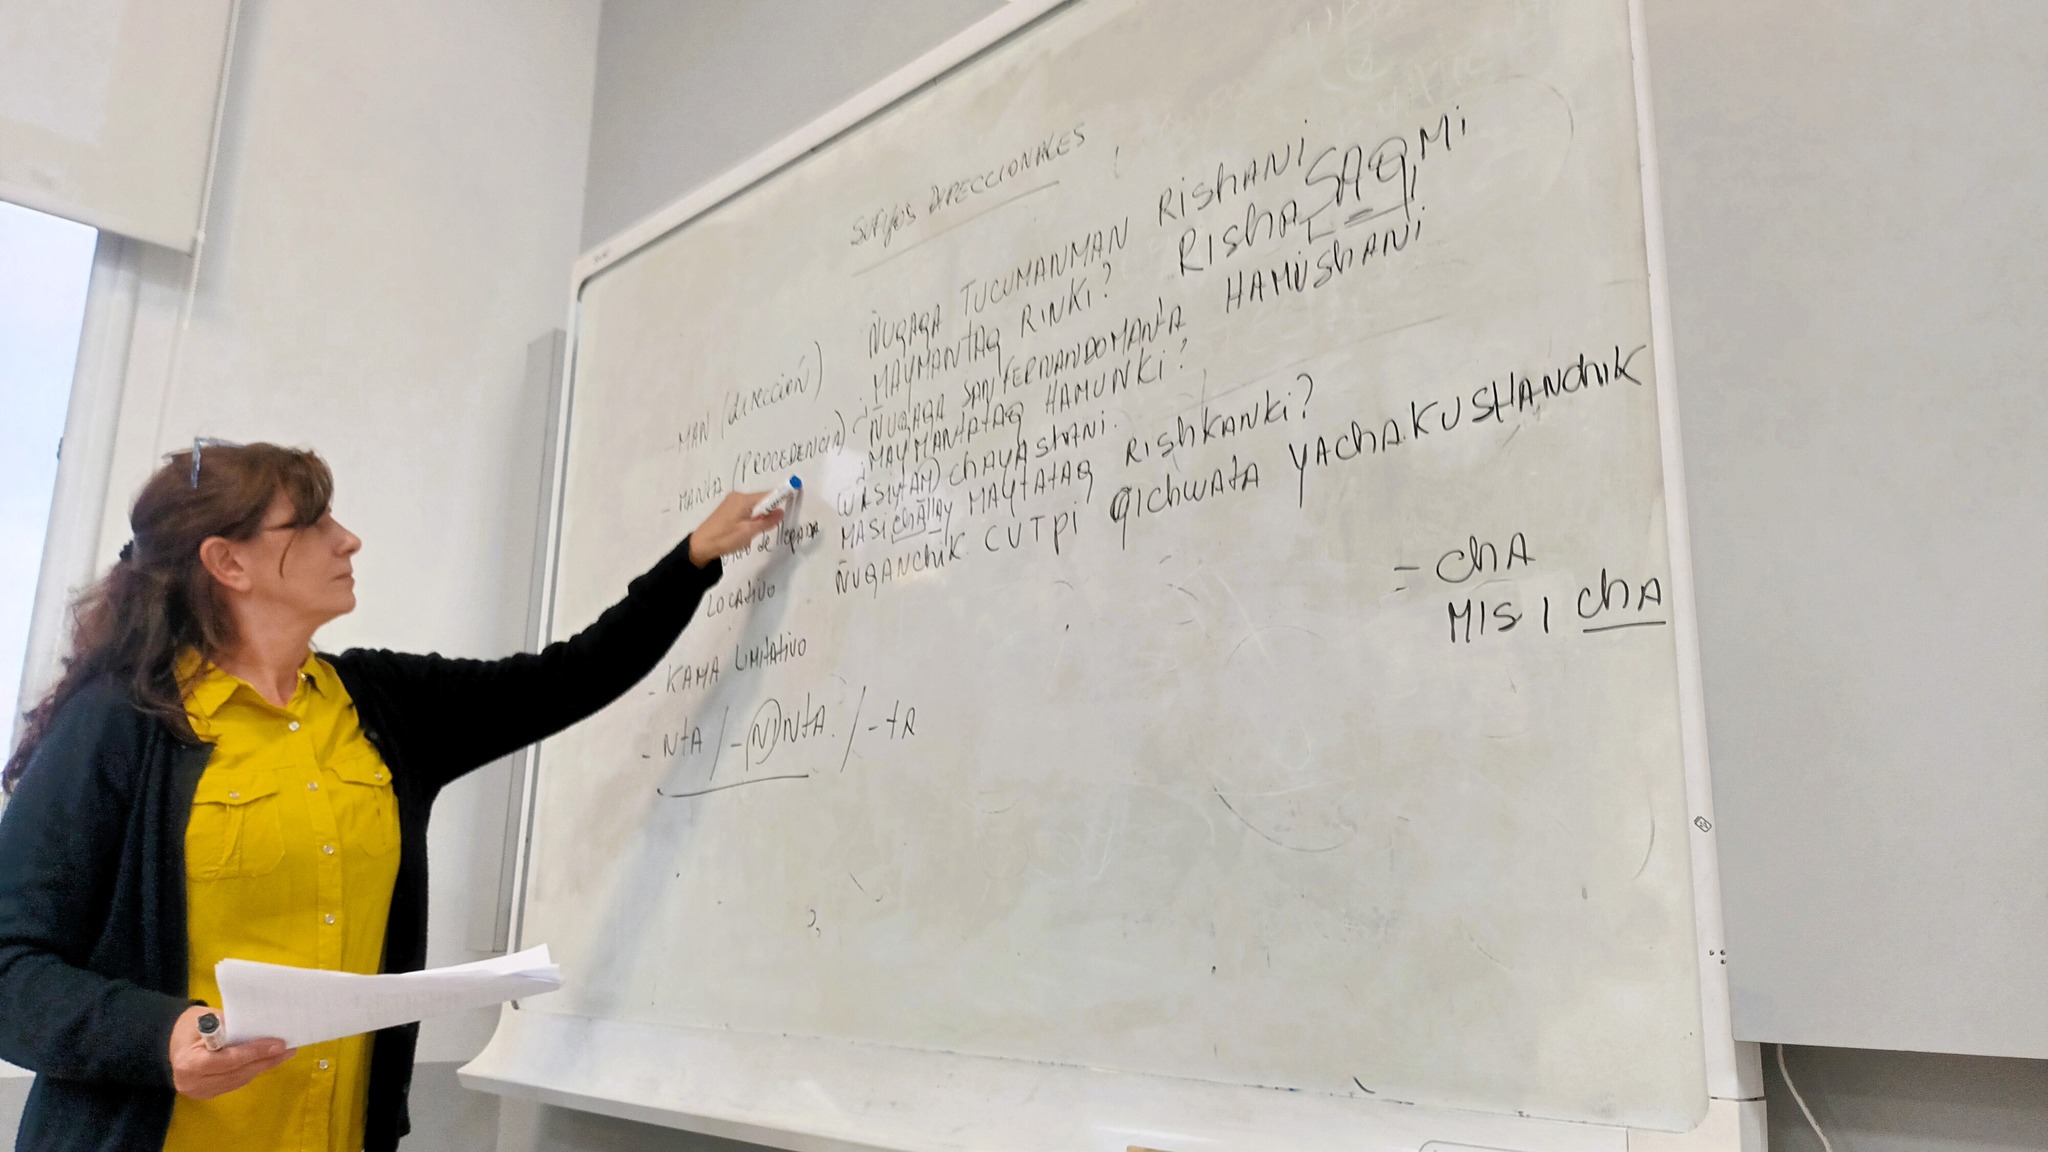 SUFIJOS DIRECCIONALES
- MAN (dIRECCIÓN) ÑUQAQA TUCUMANMAN RIShANI
¿MAYMANTAQ RINKI? RIShA SAQ, Mi
- MANtA (PROCEDENCIA) ÑUQAQA SAN FERNANDOMANtA HAMUShANi
¿MAYMANtATAQ HAMUNKi?
WASIY(TAM) ChAYAShANi.
de llegada MASiChALLAY MAYTATAQ RIShKANKi?
LOCAtiVO ÑUQANChiK CUTPI QIChWAtA YAChAKUSHANChiK
- KAMA LiMitAtiVO
- NtA / - NiNtA. / - tA
- ChA
MISI ChA